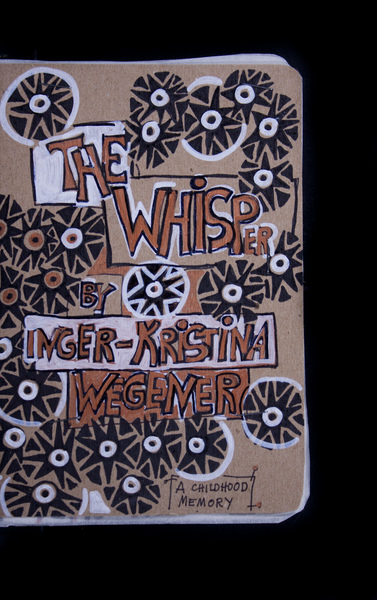 THE
WHISPER
BY
INGER-KRISTINA
WEGENER
A CHILDHOOD
MEMORY